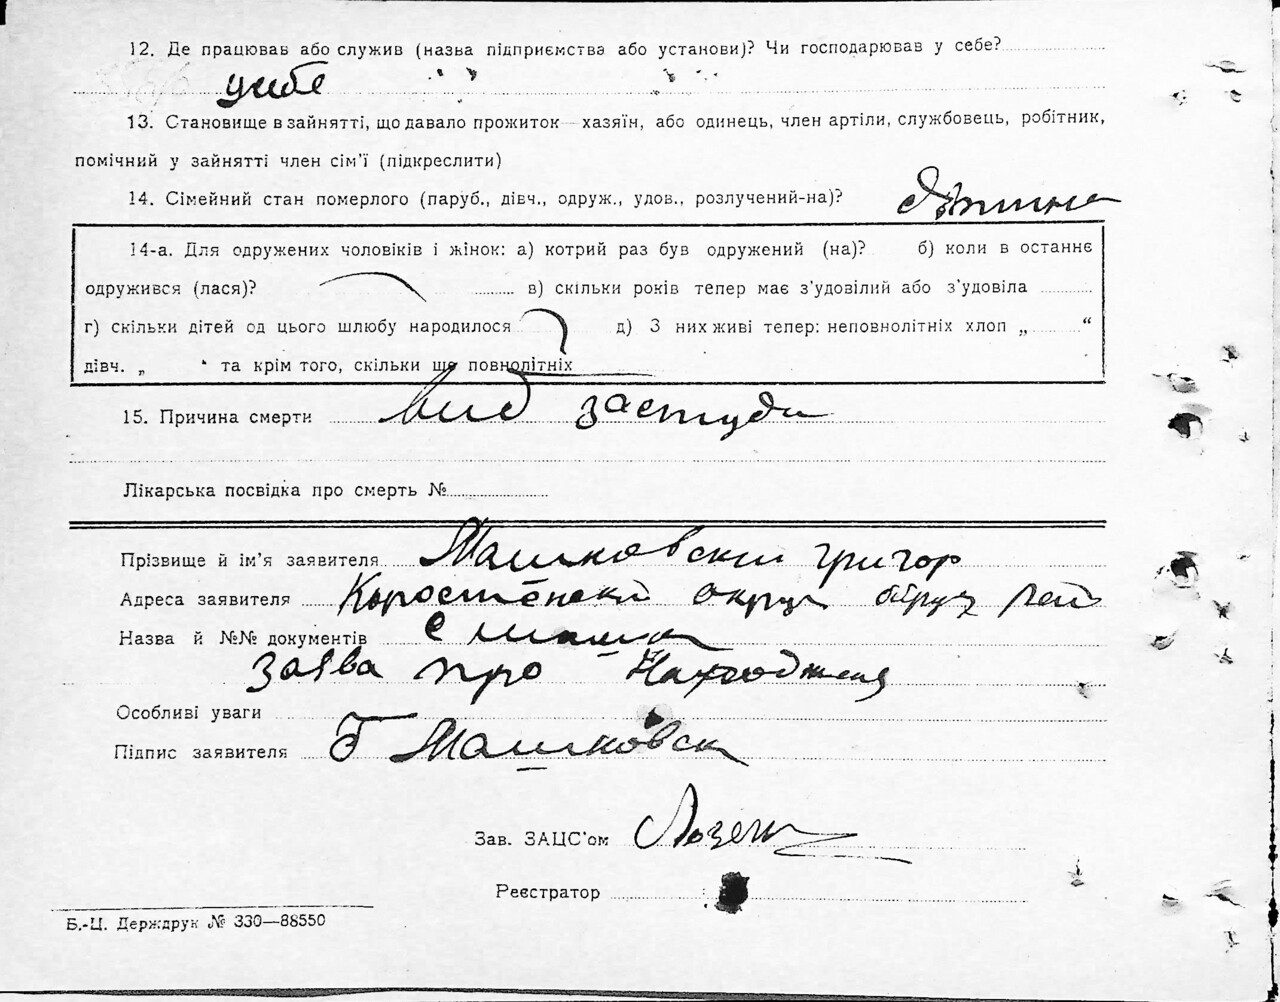 12. Де працював або служив (назва підприємства або установи)? Чи господарював у себе?
у себе
13. Становище в зайнятті, що давало прожиток — хазяїн, або одинець, член артіли, службовець, робітник,
помічний у зайнятті член сім'ї (підкреслити)
14. Сімейний стан померлого (паруб., дівч., одруж., удов., розлучений-на)? Дѣтина
14-а. Для одружених чоловіків і жінок: а) котрий раз був одружений (на)? б) коли в останнє
одружився (лася)? в) скільки років тепер має з'удовілий або з'удовіла
г) скільки дітей од цього шлюбу народилося д) З них живі тепер: неповнолітніх хлоп „ “
дівч. „ “ та крім того, скільки ще повнолітніх
15. Причина смерти вид застуди
Лікарська посвідка про смерть №
Прізвище й ім'я заявителя Машковский Григор
Адреса заявителя Коростенский округ
Назва й №№ документів
заява про
Особливі уваги
Підпис заявителя Г Машковск
Зав. ЗАЦС'ом
Реєстратор
Б.-Ц. Держдрук № 330—88550